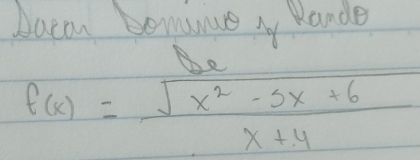 Sacar Dominio y Rando
De
f(x) = √(x² - 5x + 6) / (x + 4)